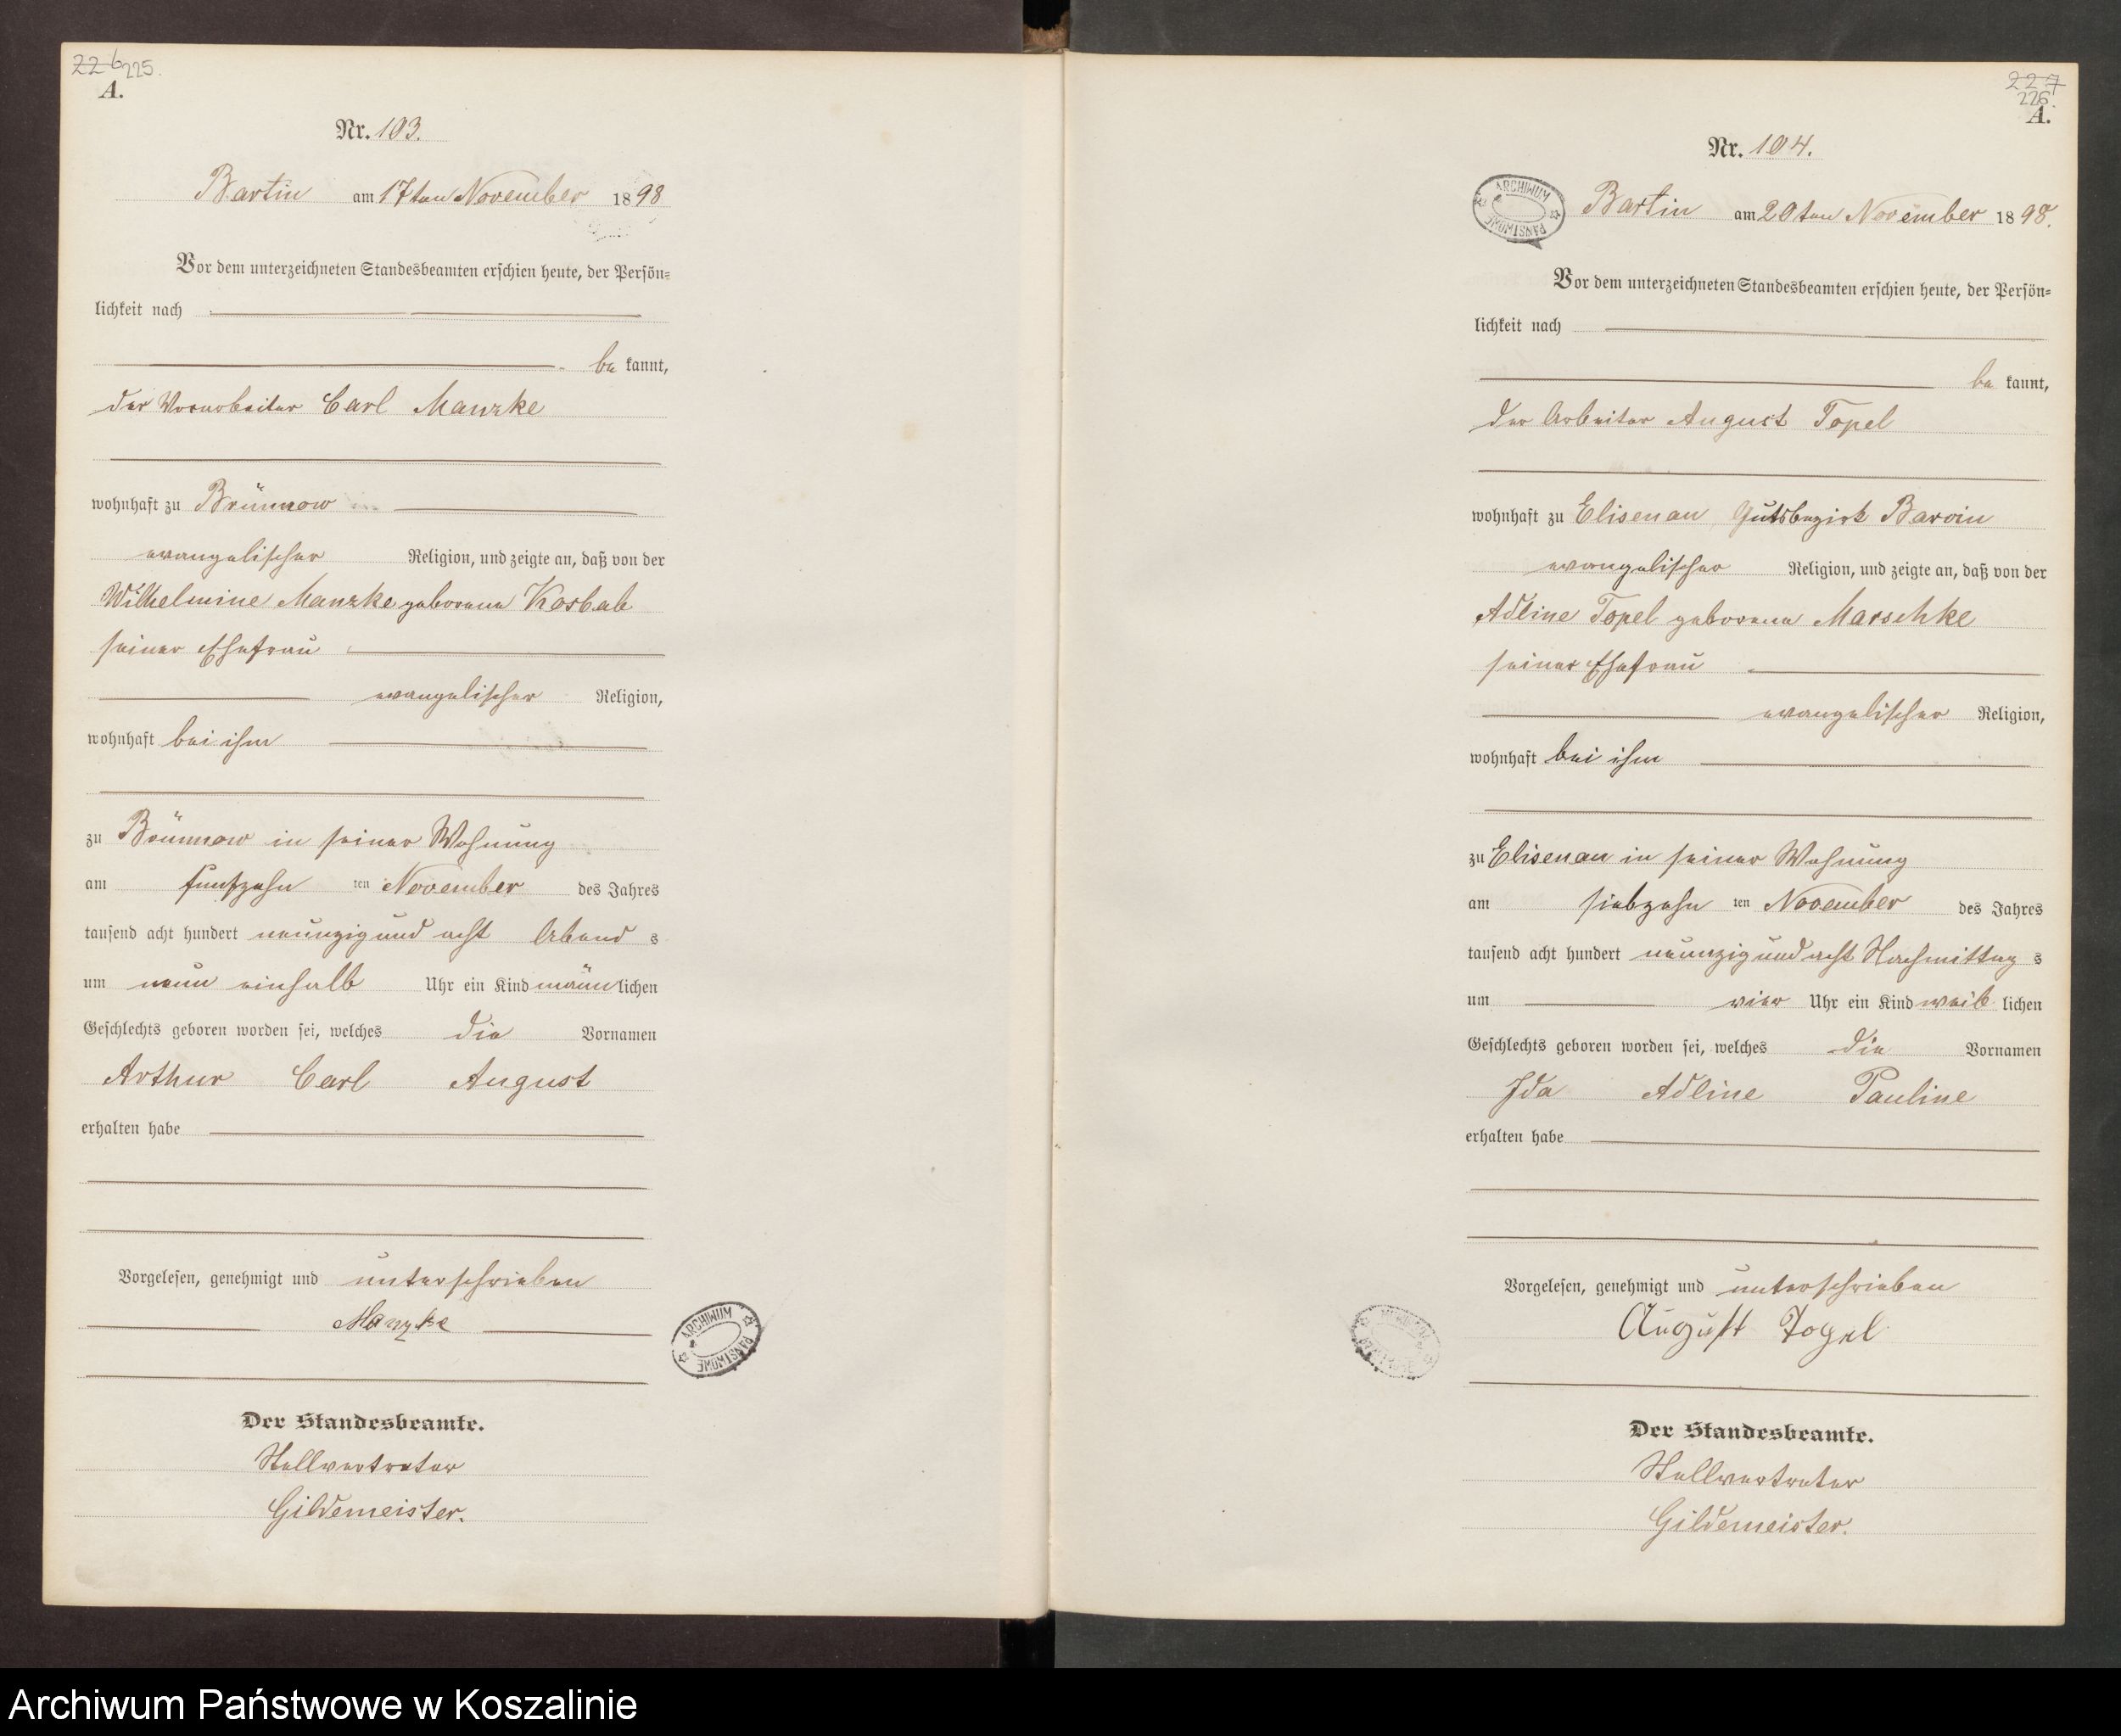 226 225.
A.
Nr. 103.
Bartin am 17ten November 1898
Vor dem unterzeichneten Standesbeamten erschien heute, der Persön=
lichkeit nach
be kannt,
der Vorarbeiter Carl Manzke
wohnhaft zu Brünnow
evangelischer Religion, und zeigte an, daß von der
Wilhelmine Manzke geborene Kosbab
seiner Ehefrau
evangelischer Religion,
wohnhaft bei ihm
zu Brünnow in seiner Wohnung
am fünfzehn ten November des Jahres
tausend acht hundert neunzig und acht Abend s
um neun einhalb Uhr ein Kind männlichen
Geschlechts geboren worden sei, welches die Vornamen
Arthur Carl August
erhalten habe
Vorgelesen, genehmigt und unterschrieben
Manzke
ARCHIWUM PAŃSTWOWE
Der Standesbeamte.
Stellvertreter
Gildemeister.
227
226.
A.
Nr. 104.
ARCHIWUM PAŃSTWOWE
Bartin am 20ten November 1898.
Vor dem unterzeichneten Standesbeamten erschien heute, der Persön=
lichkeit nach
be kannt,
der Arbeiter August Topel
wohnhaft zu Elisenau, Gutsbezirk Barvin
evangelischer Religion, und zeigte an, daß von der
Adline Topel geborene Marschke
seiner Ehefrau
evangelischer Religion,
wohnhaft bei ihm
zu Elisenau in seiner Wohnung
am siebzehn ten November des Jahres
tausend acht hundert neunzig und acht Nachmittag s
um vier Uhr ein Kind weib lichen
Geschlechts geboren worden sei, welches die Vornamen
Ida Adline Pauline
erhalten habe
Vorgelesen, genehmigt und unterschrieben
August Topel
Der Standesbeamte.
Stellvertreter
Gildemeister.
Archiwum Państwowe w Koszalinie